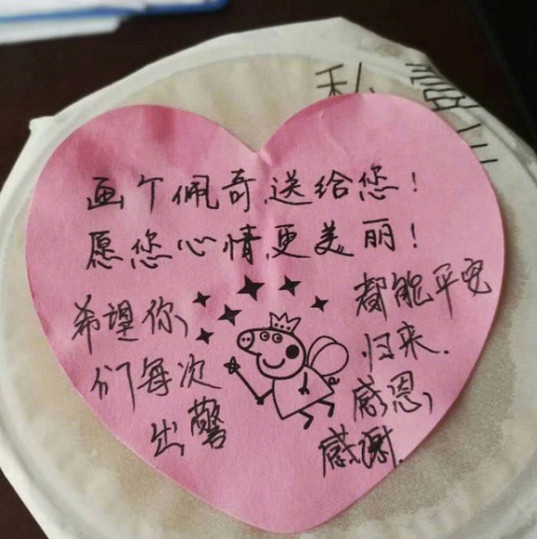 画个佩奇送给您！
愿您心情更美丽！
希望你
们每次
出警
都能平安
归来.
感恩,
感谢.